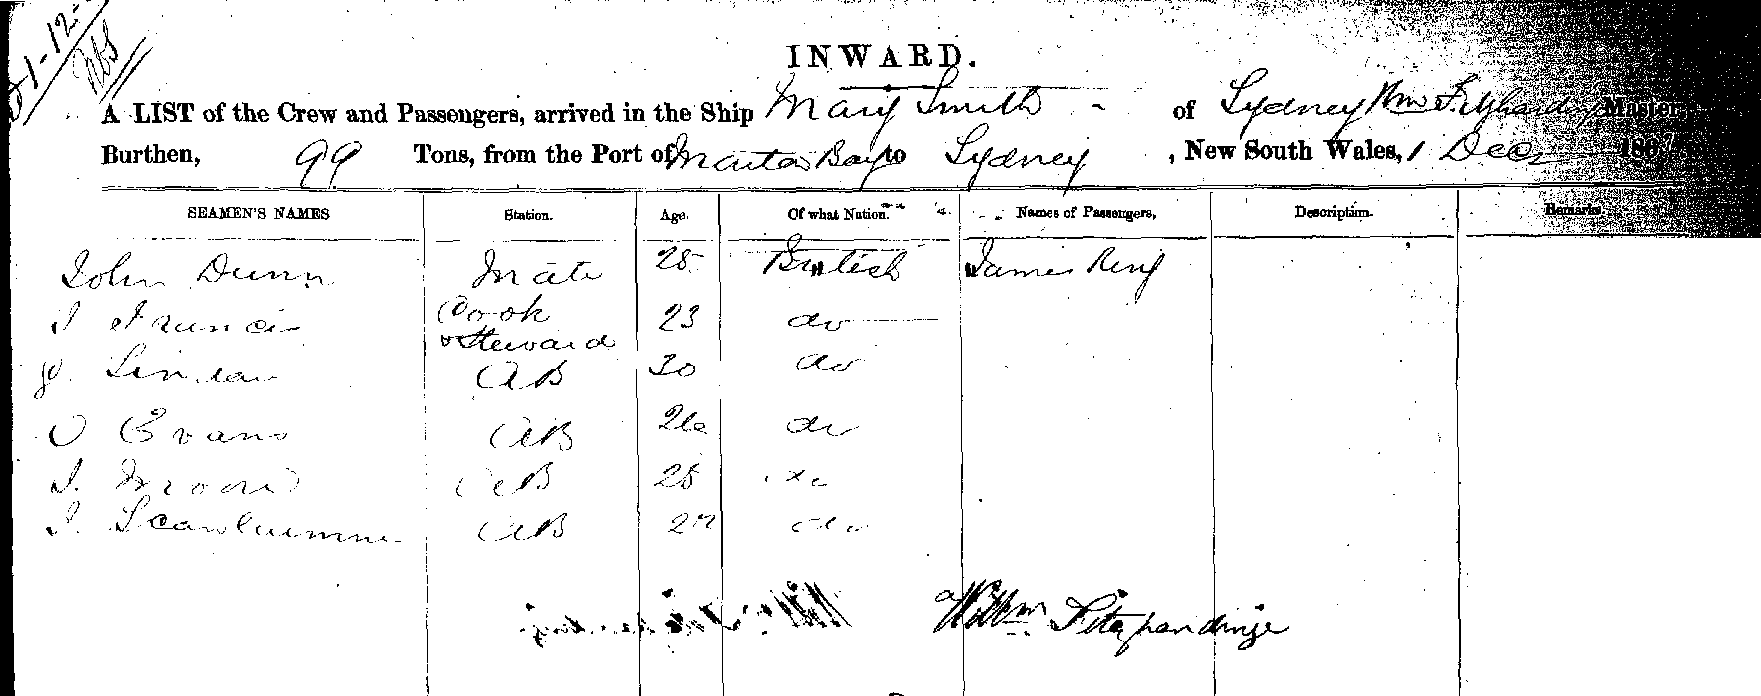 INWARD.
A LIST of the Crew and Passengers, arrived in the Ship Mary Smith of Sydney Wm Fitzhardinge Master
Burthen, 99 Tons, from the Port of Bay to Sydney, New South Wales, 1 Decr 186
SEAMEN'S NAMES Station. Age. Of what Nation. Names of Passengers, Description. Remarks
John Dunn Mate 28 British James
Cook
J Francis 23 do
& Steward
J. AB 30 do
O Evans AB 26 do
J. Moore AB 28
J. AB 27 do
Willm Fitzhardinge